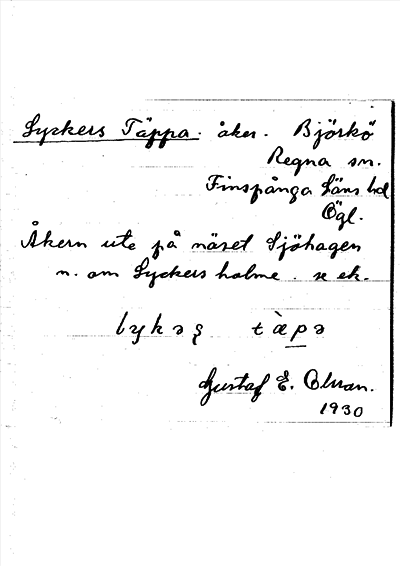 Lyckers Täppa. åker. Björkö
Regna sn.
Finspånga läns hd
Ögl.
Åkern ute på näset Sjöhagen
n. om Lyckers holme. se ek.
lykəş tæ̀pə
Gustaf E. Olman.
1930